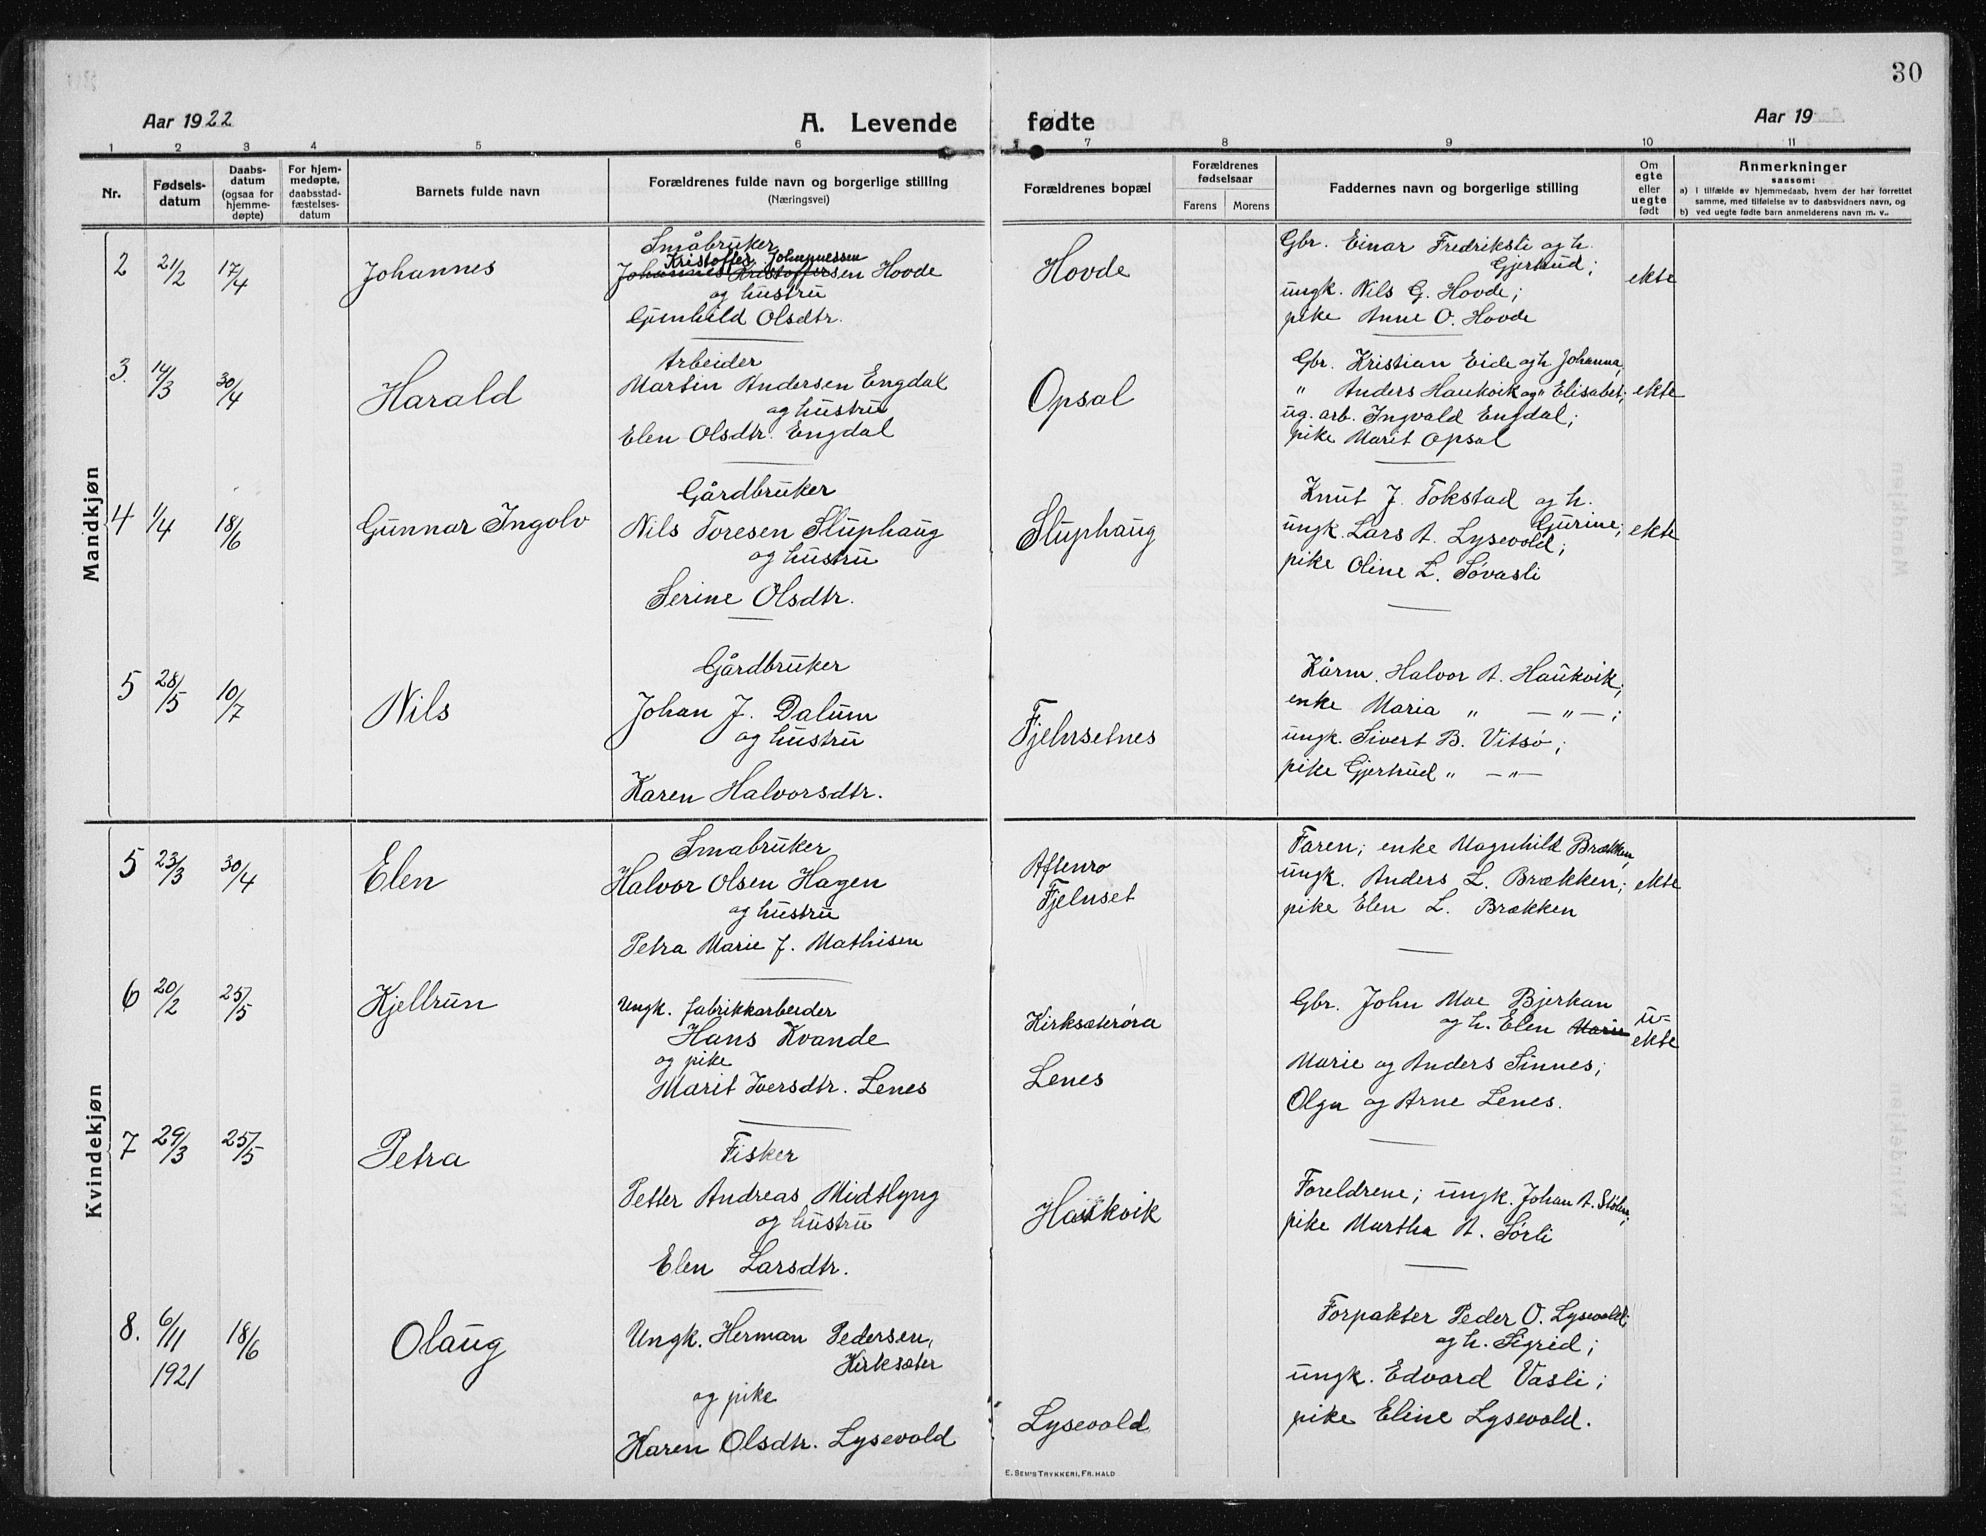 30
Aar 1922
A. Levende
fødte
Aar 19
1 2 3 4 5 6 7 8 9 10 11
Nr.
Fødsels-
datum
Daabs-
datum
(ogsaa for
hjemme-
døpte)
For hjem-
medøpte,
daabsstad-
fæstelses-
datum
Barnets fulde navn
Forældrenes fulde navn og borgerlige stilling
(Næringsvei)
Forældrenes bopæl
Forældrenes
fødselsaar
Farens Morens
Faddernes navn og borgerlige stilling
Om
egte
eller
uegte
født
Anmerkninger
saasom:
a) i tilfælde av hjemmedaab, hvem der har forrettet
samme, med tilføielse av to daabsvidners navn, og
b) ved uegte fødte barn anmelderens navn m. v..
Mandkjøn
2 21/2 17/4 Johannes
Småbruker
Kristoffer Johannessen
Johannes Kristoffersen Hovde
og hustru
Gunhild Olsdtr.
Hovde
Gbr. Einar Fredriksli og h.
Gjertrud;
ungk. Nils G. Hovde;
pike Anne O. Hovde
ekte
3. 14/3 30/4 Harald
Arbeider
Martin Andersen Engdal
og hustru
Elen Olsdtr. Engdal
Opsal
Gbr. Kristian Eide og h Johanna,
" Anders Haukvik og " Elisabet;
ug. arb. Ingvald Engdal;
pike Marit Opsal
ekte
4 1/4 18/6 Gunnar Ingolv
Gårdbruker
Nils Toresen Sluphaug
og hustru
Serine Olsdtr.
Sluphaug
Knut J. Tokstad og h.
Gurine;
ungk. Lars A. Lysevold;
pike Oline L. Søvasli
ekte
5 28/5 10/7 Nils
Gårdbruker
Johan J. Dalum
og hustru
Karen Halvorsdtr.
Fjelnsetnes
Kårm. Halvor A. Haukvik;
enke Maria " — " — ;
ungk. Sivert B. Vitsø;
pike Gjertrud " — " —
Kvindekjøn
5 23/3 30/4 Elen
Småbruker
Halvor Olsen Hagen
og hustru
Petra Marie J. Mathisen
Aftenro
Fjelnset
Faren; enke Magnhild Brækken,
ungk. Anders L. Brækken;
pike Elen L. Brækken
ekte
6 20/2 25/5 Kjellrun
Ungk. fabrikkarbeider
Hans Kvande
og pike
Marit Iversdtr. Lenes
Kirksæterøra
Lenes
Gbr. John Moe Bjerkan
og h. Elen Marie
Marie og Anders Sinnes;
Olga og Arne Lenes.
u-
ekte
7 29/3 25/5 Petra
Fisker
Petter Andreas Midtlyng
og hustru
Elen Larsdtr.
Haukvik
Foreldrene; ungk. Johan A. Stølen;
pike Martha A. Sørli
8. 6/11 18/6 Olaug
1921
Ungk. Herman Pedersen,
Kirksæter
og pike
Karen Olsdtr. Lysevold
Lysevold
Forpakter Peder O. Lysevold;
og h. Sigrid;
ungk. Edvard Vasli;
pike Eline Lysevold.
E. SEM'S TRYKKERI, FR. HALD